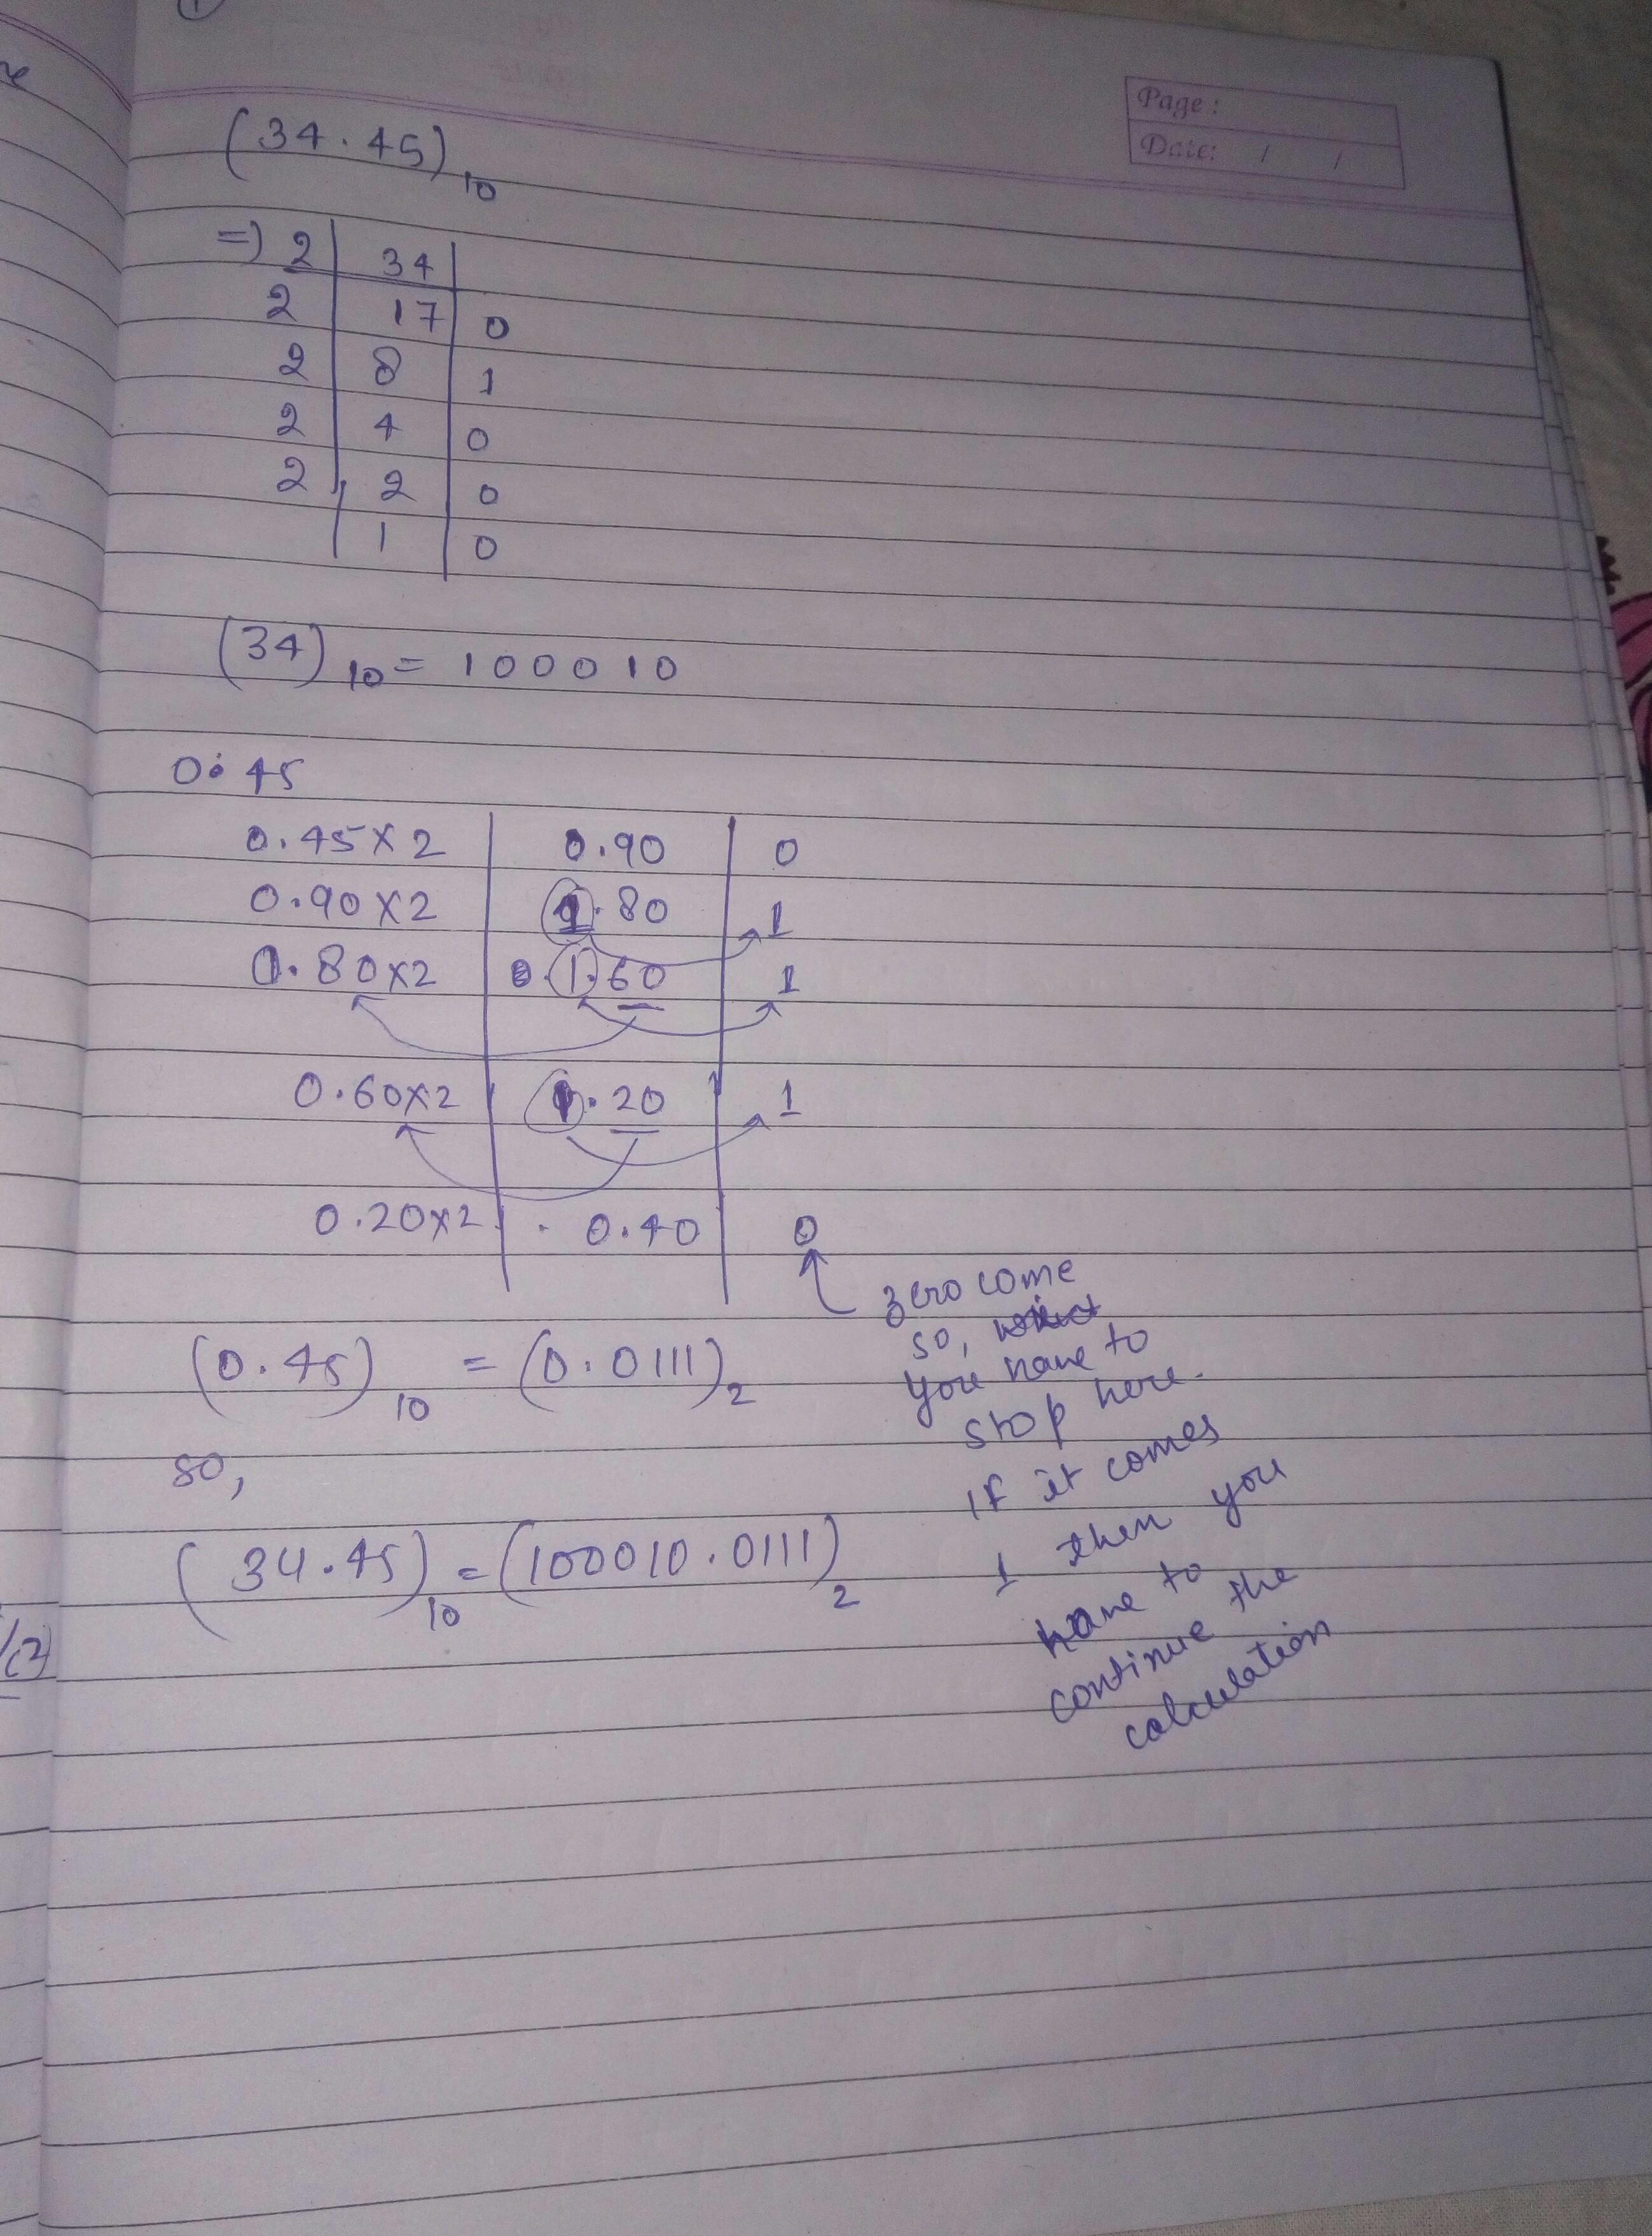 Page :
Date: / /
(34.45)10
=) 2 | 34 |
2 | 17 | 0
2 | 8 | 1
2 | 4 | 0
2 | 2 | 0
| 1 | 0
(34)10 = 100010
0.45
0.45×2 | 0.90 | 0
0.90×2 | 1.80 | 1
0.80×2 | 0.1.60 | 1
0.60×2 | 1.20 | 1
0.20×2 | . 0.40 | 0
zero come
so,
you have to
stop here.
if it comes
1 then you
have to
continue the
calculation
(0.45)10 = (0.0111)2
so,
(34.45)10 = (100010.0111)2
/(2)